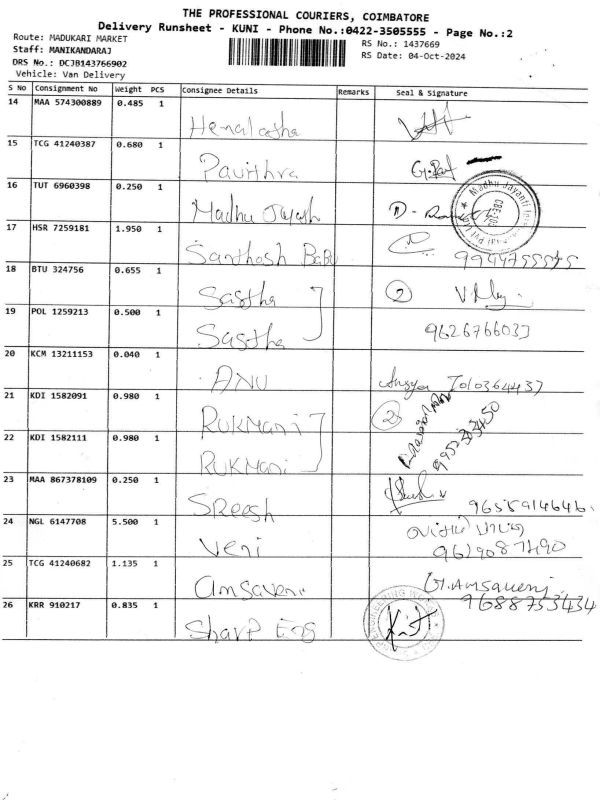 THE PROFESSIONAL COURIERS, COIMBATORE
Delivery Runsheet - KUNI - Phone No.:0422-3505555 - Page No.:2
Route: MADUKARI MARKET
RS No.: 1437669
Staff: MANIKANDARAJ
RS Date: 04-Oct-2024
DRS No.: DCJB143766902
Vehicle: Van Delivery
S No Consignment No Weight PCS Consignee Details Remarks Seal & Signature
14 MAA 574300889 0.485 1
Hemalatha
15 TCG 41240387 0.680 1
Pavithra
16 TUT 6960398 0.250 1
Madhu Jayanti
Madhu
17 HSR 7259181 1.950 1
Santhosh Babu
18 BTU 324756 0.655 1
Sastha 2
19 POL 1259213 0.500 1
Sastha 9626766033
20 KCM 13211153 0.040 1
ANU
21 KDI 1582091 0.980 1
RUKMani 2
22 KDI 1582111 0.980 1
RUKMani
23 MAA 867378109 0.250 1
SReesh 9655914646
24 NGL 6147708 5.500 1
Veni 9619087490
25 TCG 41240682 1.135 1
amsaveni G.Amsaveni
9688753434
26 KRR 910217 0.835 1
Sharp Eng